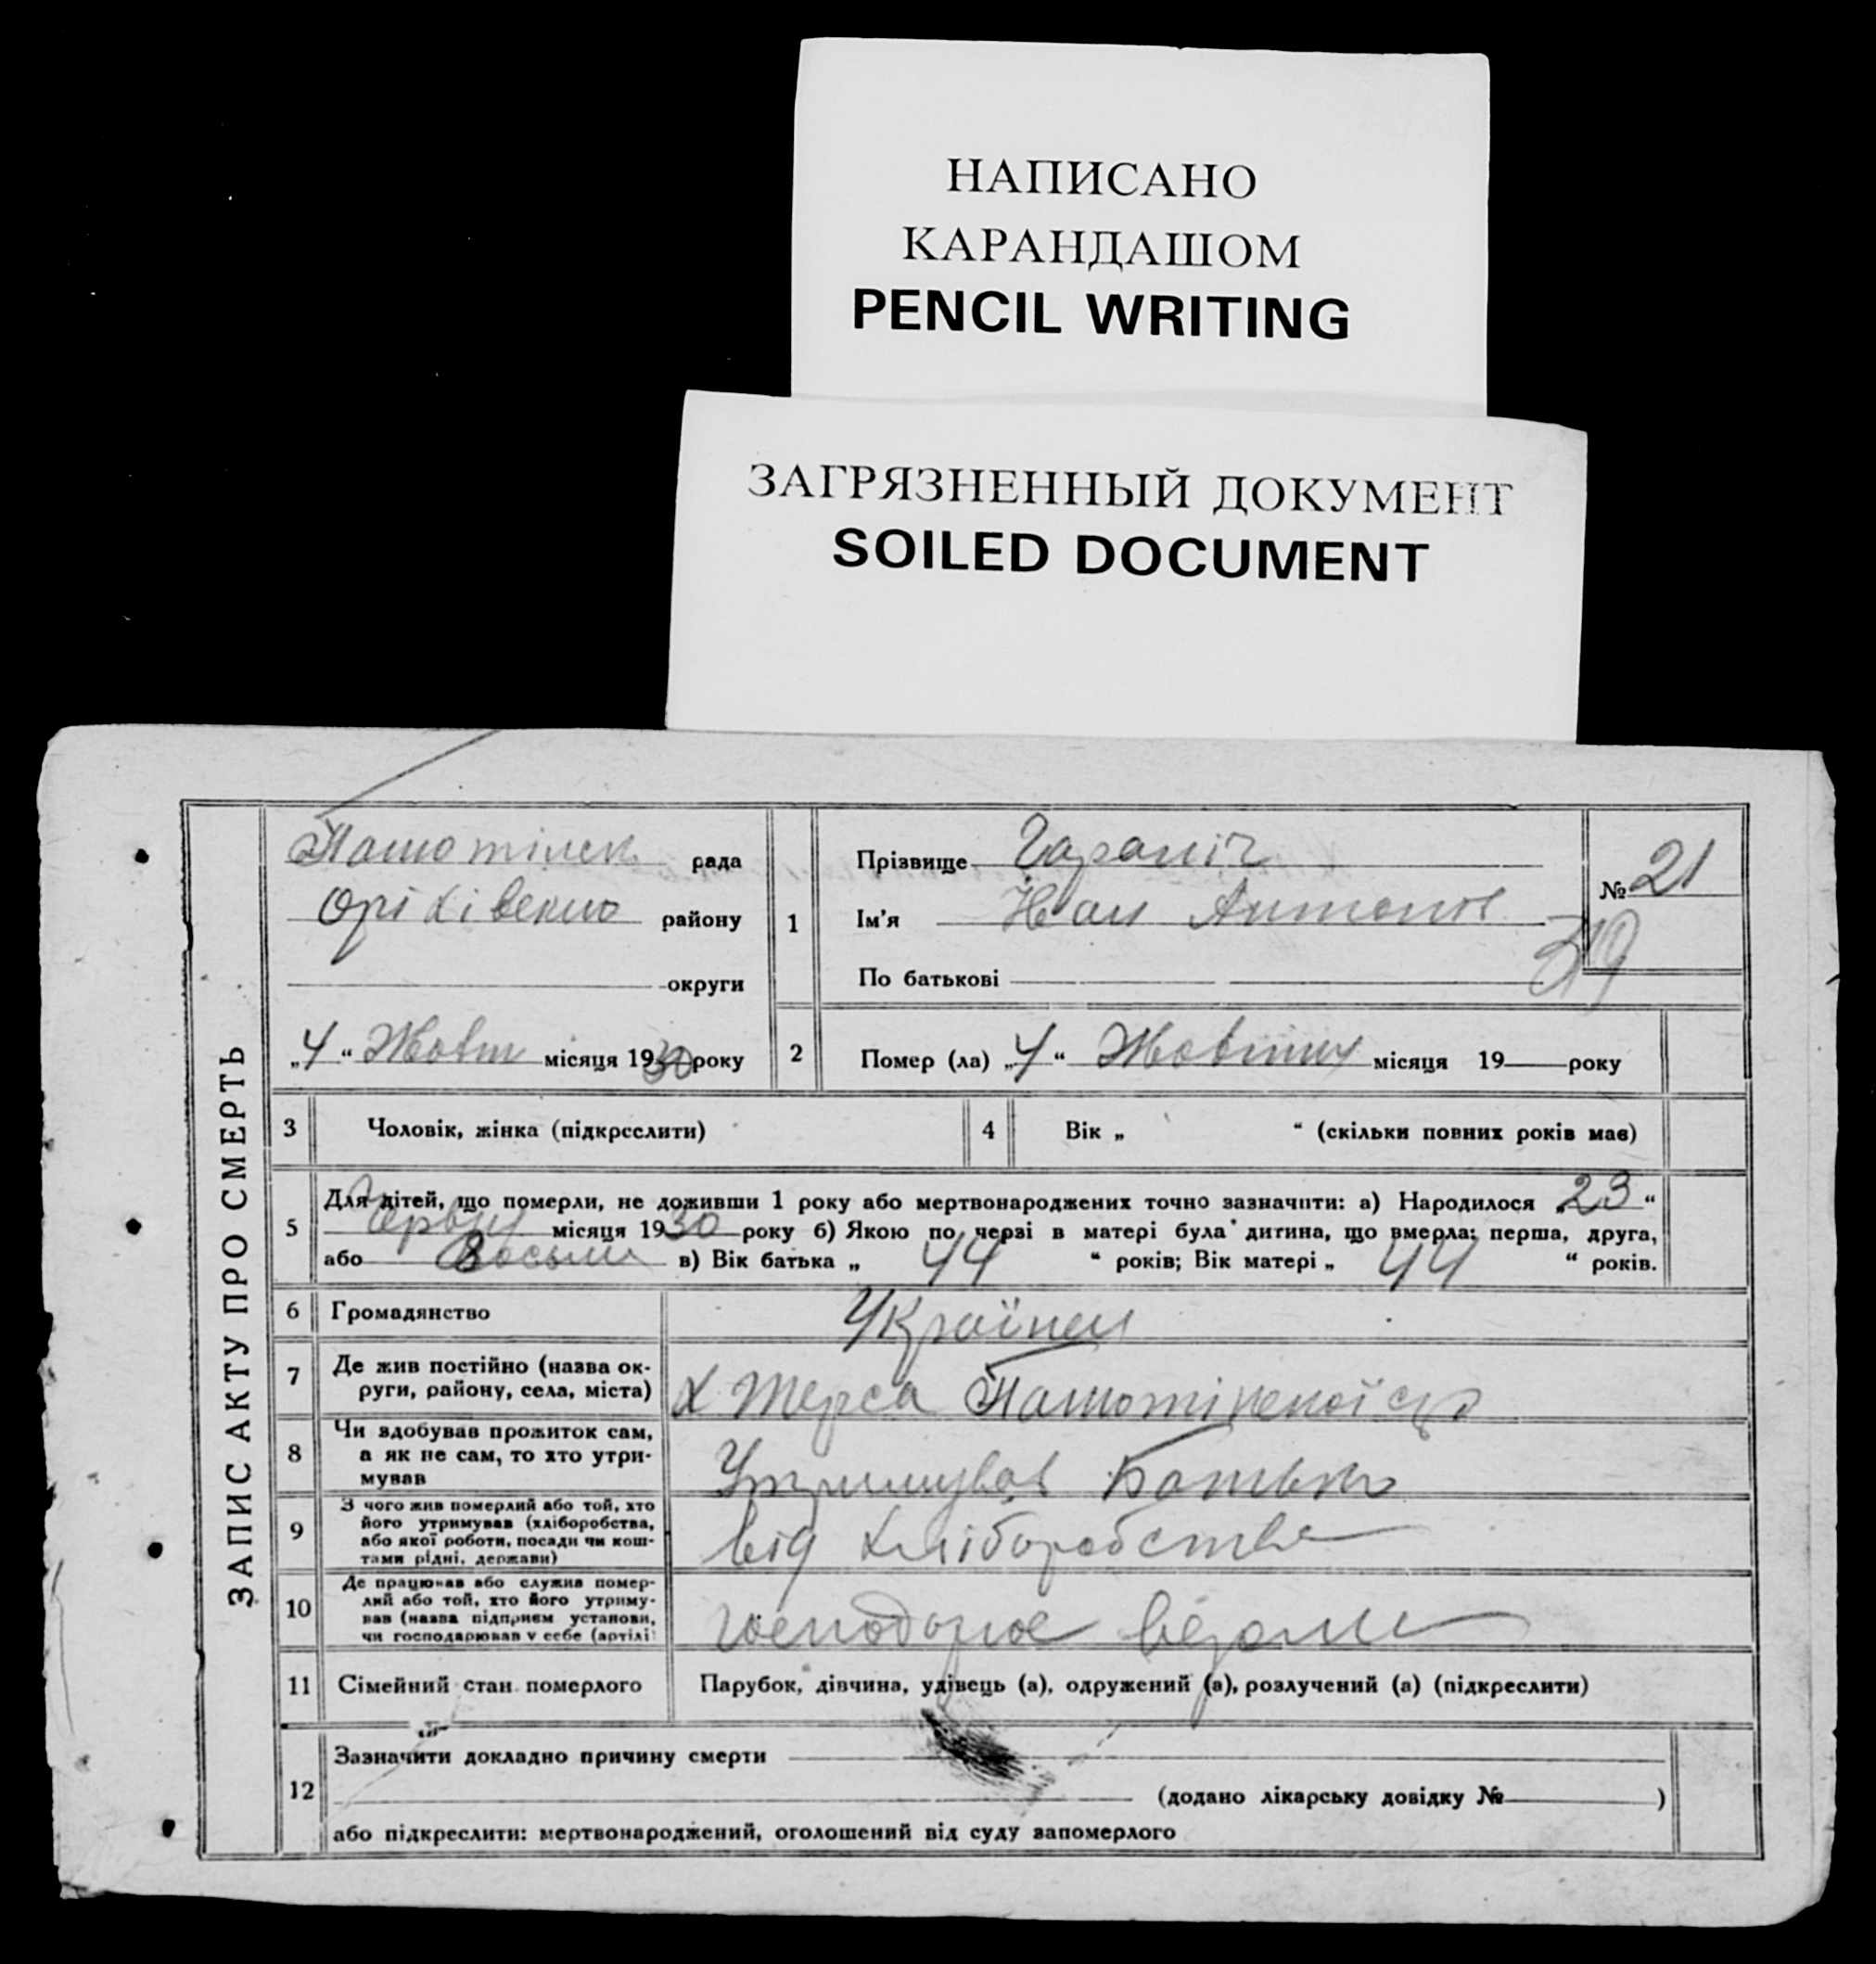 НАПИСАНО
КАРАНДАШОМ
PENCIL WRITING
ЗАГРЯЗНЕННЫЙ ДОКУМЕНТ
SOILED DOCUMENT
ЗАПИС АКТУ ПРО СМЕРТЬ
рада
району
округи
„4“ Жовт місяця 1930 року
1
Прізвище Гараніч
Ім'я Іван Антонов
По батькові
№ 21
319
2 Помер (ла) „4“ Жовтня місяця 19 року
3 Чоловік, жінка (підкреслити)
4 Вік „ “ (скільки повних років має)
5 Для дітей, що померли, не доживши 1 року або мертвонароджених точно зазначити: а) Народилося „23“
Червня місяця 1930 року б) Якою по черзі в матері була дитина, що вмерла: перша, друга,
або 8 в) Вік батька „ 44 “ років; Вік матері „ 44 “ років.
6 Громадянство Українец
7 Де жив постійно (назва ок-
руги, району, села, міста)
х Терса
8 Чи здобував прожиток сам,
а як не сам, то хто утри-
мував
Утримував Батько
9 З чого жив померлий або той, хто
його утримував (хліборобства,
або якої роботи, посади чи кош-
тами рідні, держави)
від хліборобства
10 Де працював або служив помер-
лий або той, хто його утриму-
вав (назва підприєм установи,
чи господарював у себе (артілі
11 Сімейний стан померлого Парубок, дівчина, удівець (а), одружений (а), розлучений (а) (підкреслити)
12 Зазначити докладно причину смерти
(додано лікарську довідку № )
або підкреслити: мертвонароджений, оголошений від суду запомерлого